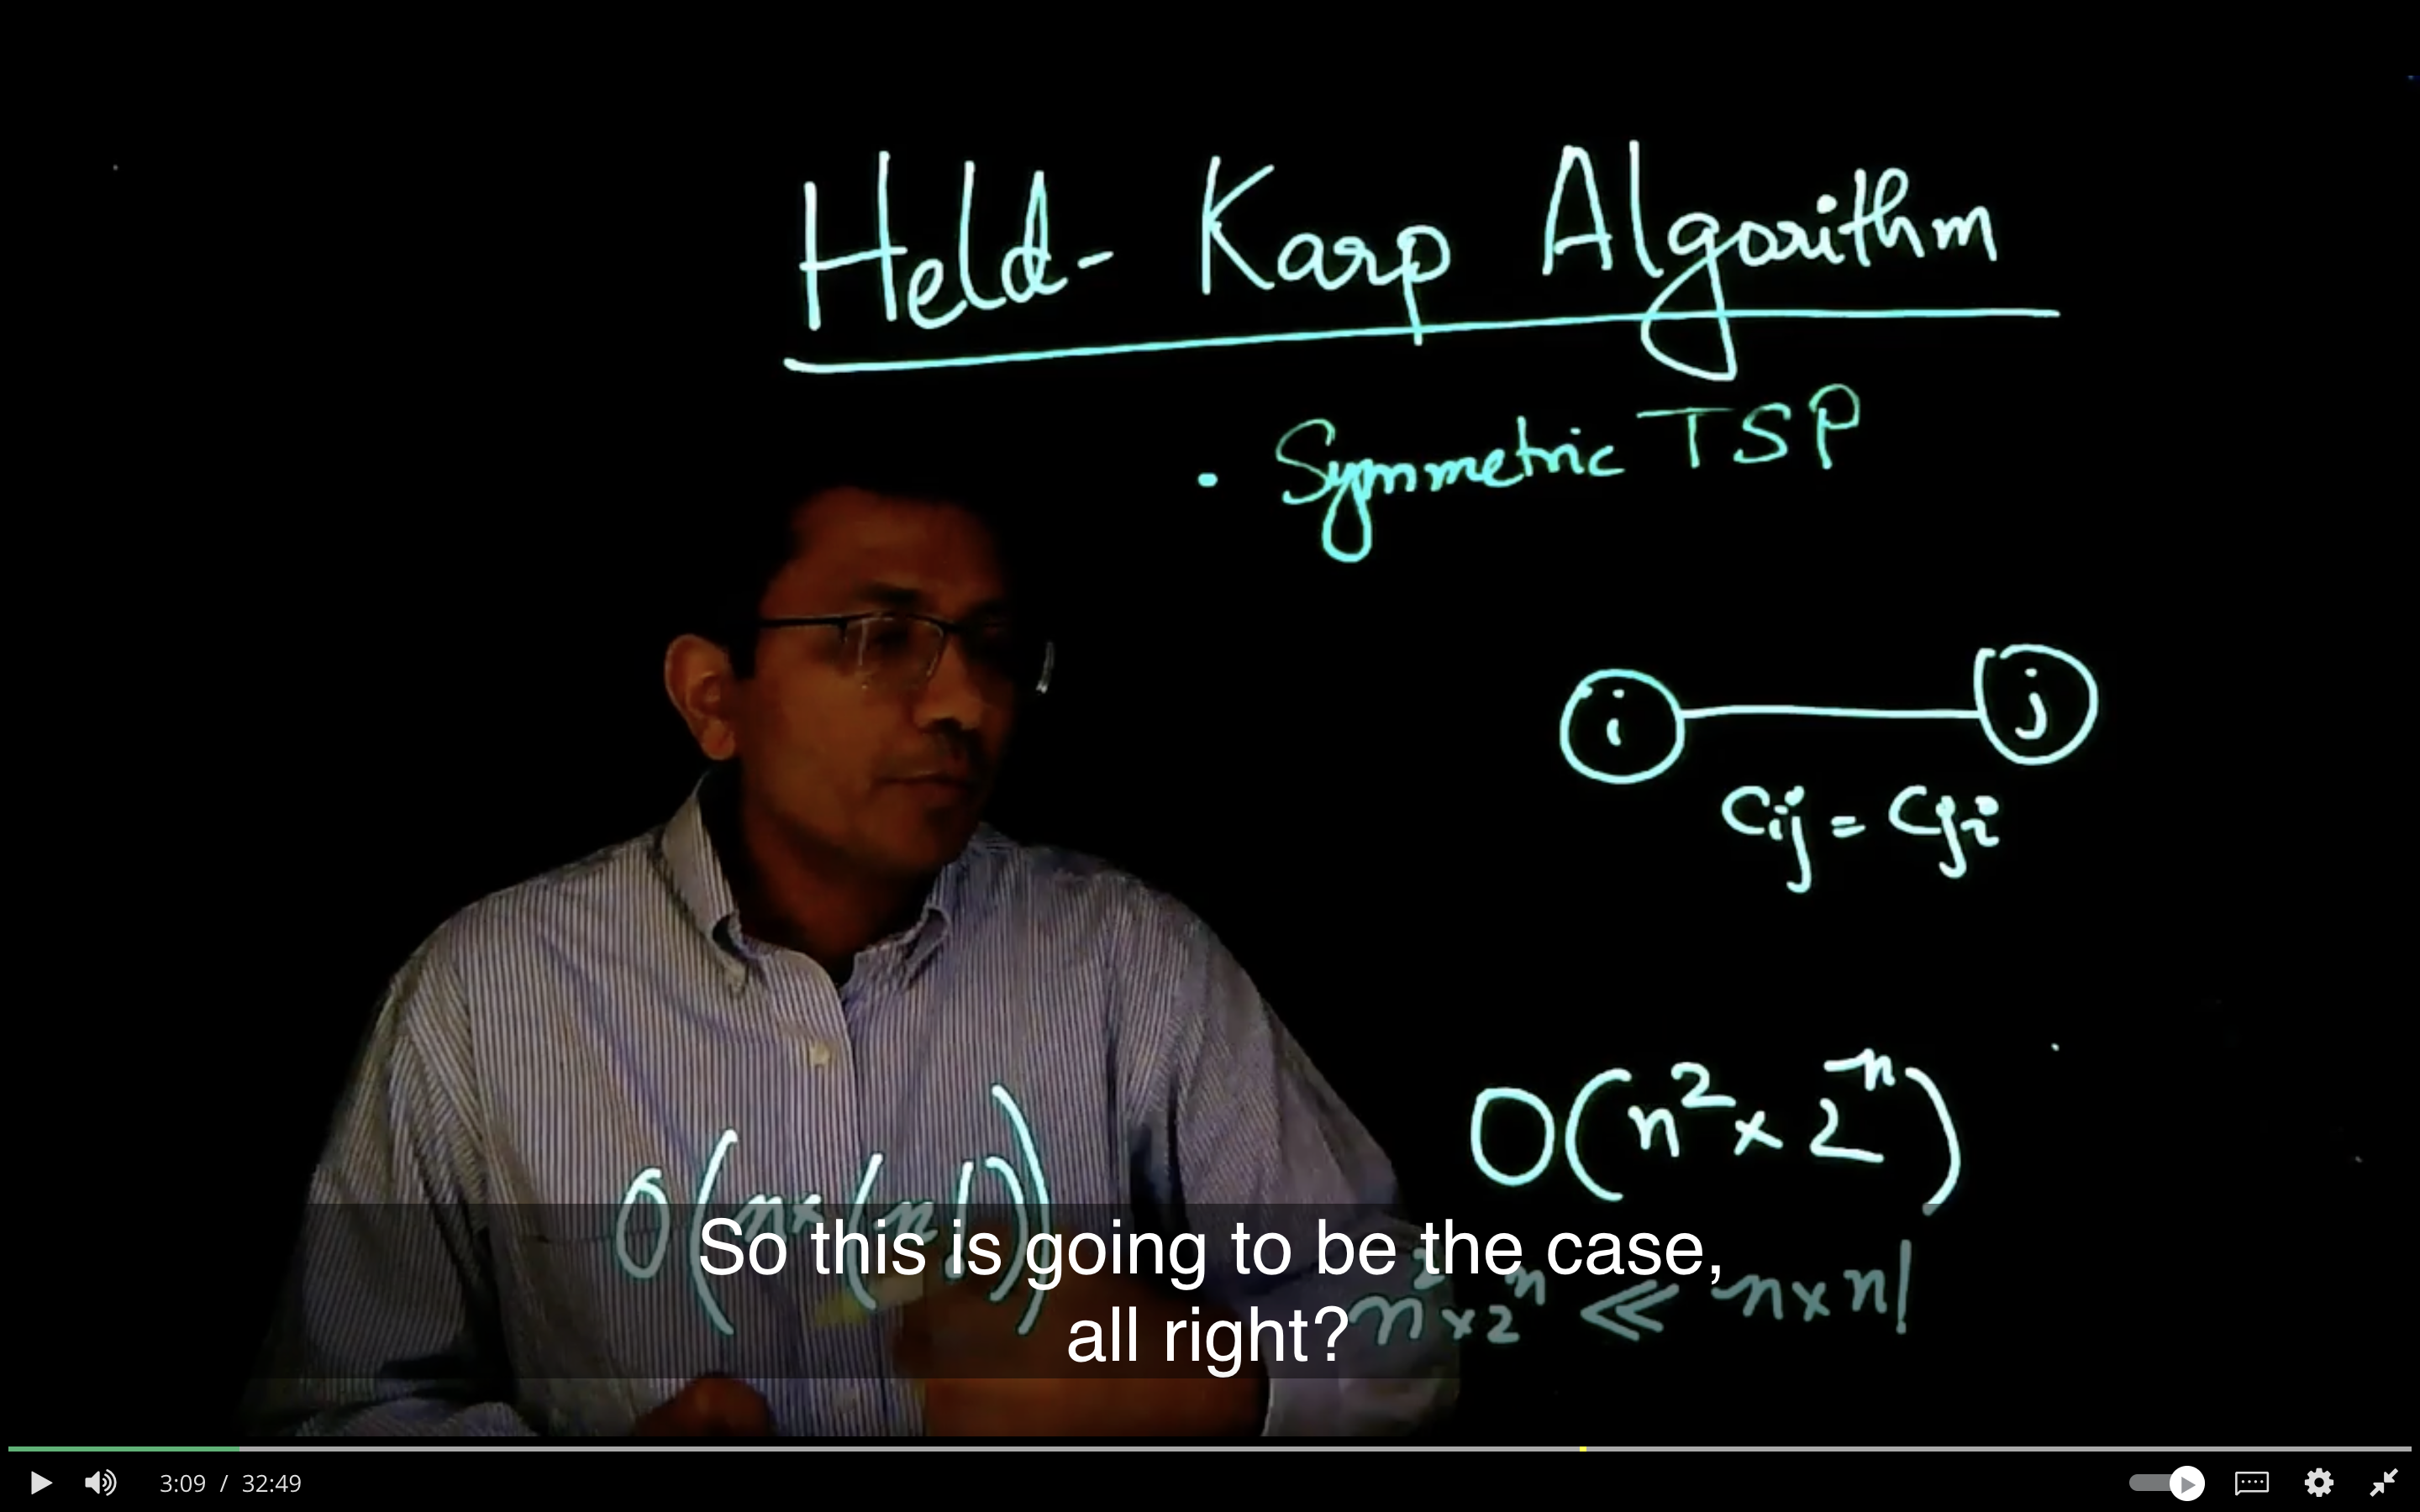 Held-Karp Algorithm
· Symmetric TSP
i
j
Cij = Cji
O(n² × 2ⁿ)
O(n×(n!))
n² × 2ⁿ ≪ n × n!
So this is going to be the case,
all right?
3:09 / 32:49